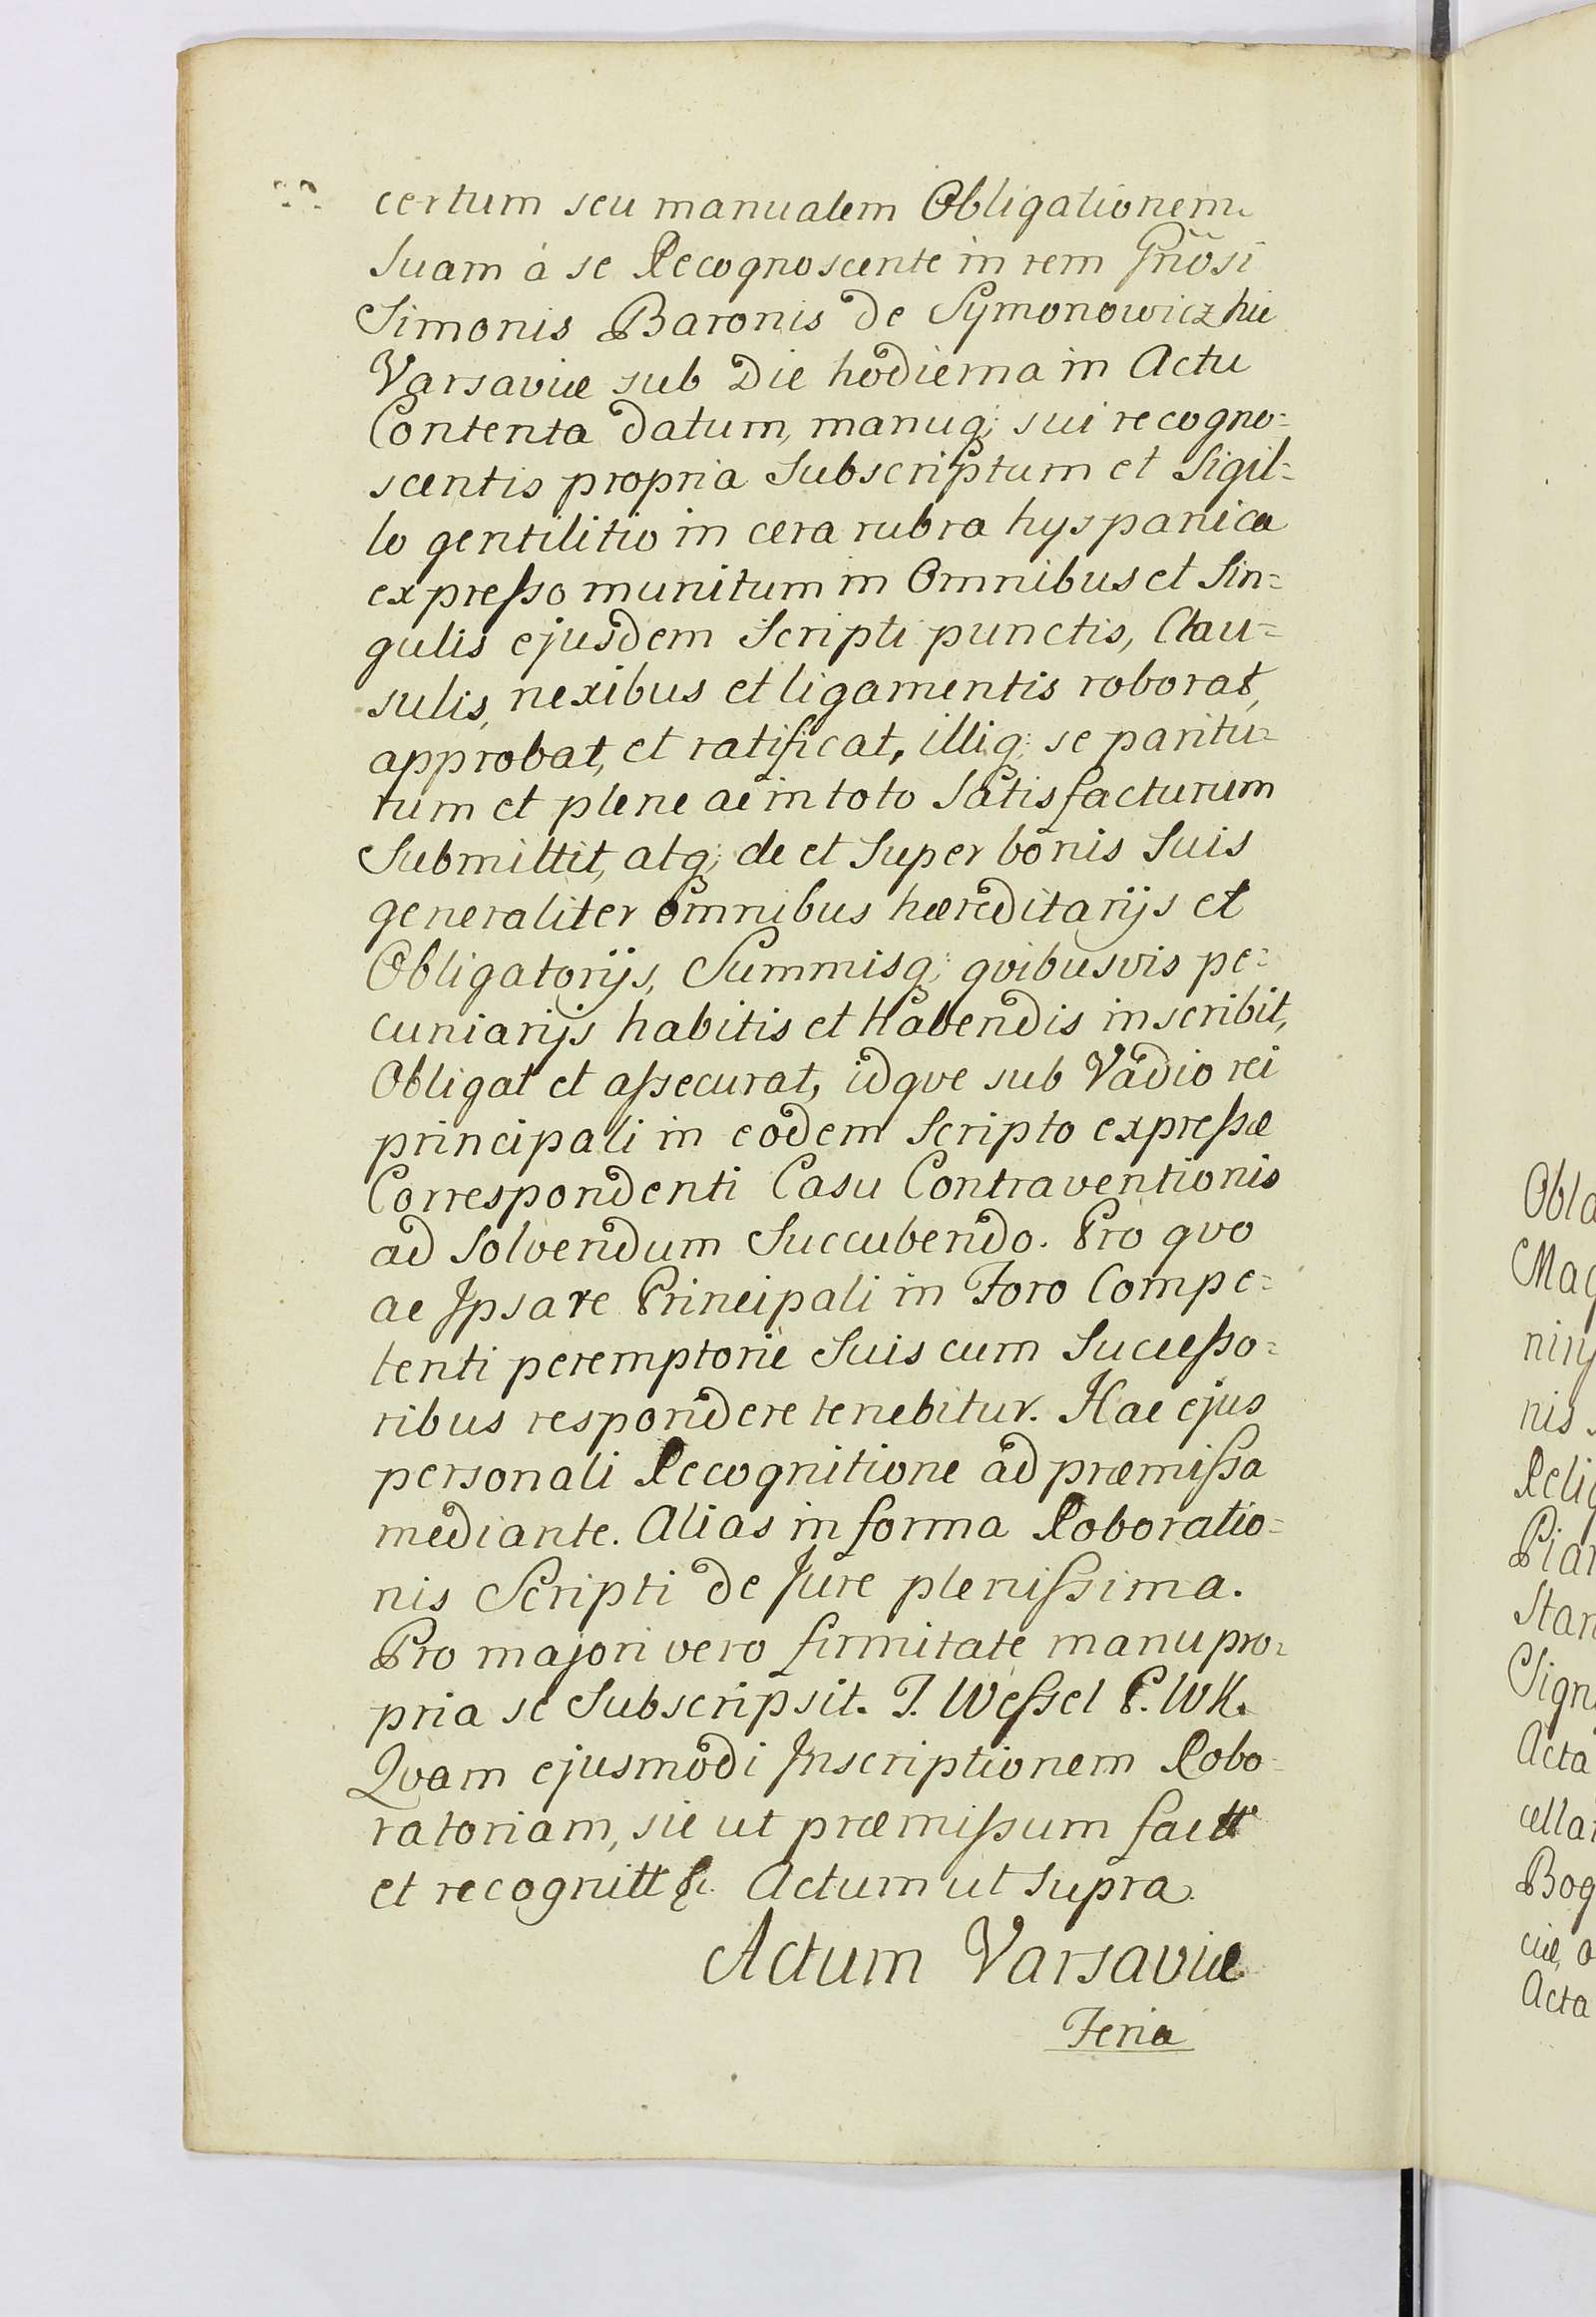 certum seu manualem Obligationem
Suam à se Recognoscente in rem Gñosi
Simonis Baronis de Symonowicz hic
Varsaviæ sub Die hodierna in Actu
Contenta datum, manuq; sui recogno=
scentis propria Subscriptum et Sigil=
lo gentilitio in cera rubra hyspanica
expresso munitum in Omnibus et Sin=
gulis ejusdem Scripti punctis, Clau=
sulis, nexibus et ligamentis roborat,
approbat, et ratificat, illiq; se paritu=
rum et plene ac in toto Satisfacturum
Submittit, atq; de et Super bonis Suis
generaliter omnibus hæreditarijs et
Obligatorijs, Summisq; qvibusvis pe=
cuniarijs habitis et Habendis inscribit,
Obligat et assecurat, idqve sub Vadio rei
principali in eodem Scripto expressæ
Correspondenti Casu Contraventionis
ad Solvendum Succubendo. Pro qvo
ac Ipsa re Principali in Foro Compe=
tenti peremptorie Suis cum Successo=
ribus respondere tenebitur. Hac ejus
personali Recognitione ad præmissa
mediante. Alias in forma Roboratio=
nis Scripti de Jure plenissima.
Pro majori vero firmitate manu pro=
pria se Subscripsit. T. Wessel P. W K.
Qvam ejusmodi Inscriptionem Robo=
ratoriam, sic ut præmissum factt
et recognitt &. Actum ut Supra.
Actum Varsaviæ
Feria
Obla
Mag
nis
Relig
Pia
Stan
Sign
Acta
cella
Bog
ciæ, o
Acta